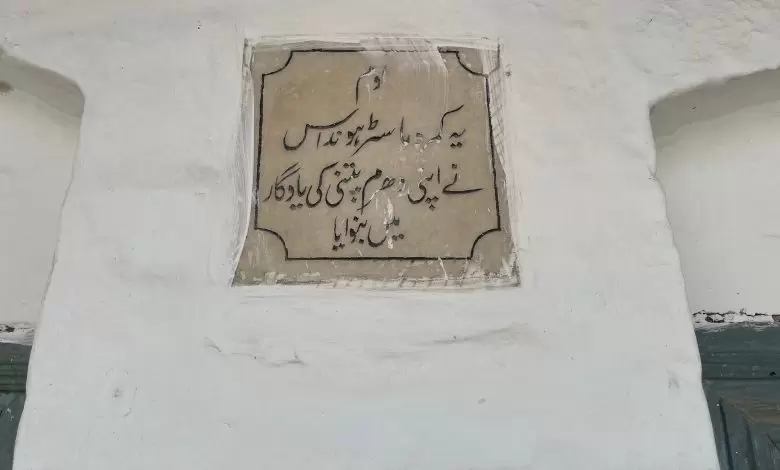 اوم
یہ کمرہ ماسٹر ہوندداس
نے اپنی دھرم پتنی کی یادگار
میں بنوایا